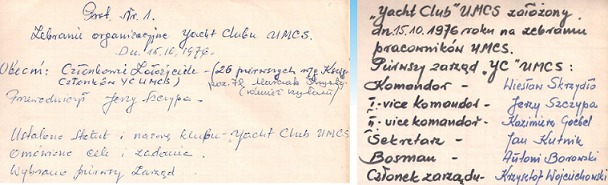 Prot. Nr. 1.
Zebranie organizacyjne Yacht Clubu UMCS.
Dn. 15.10.1976.
Obecni: Członkowie Założyciele - (26 pierwszych wg Księgi
Członków YC UMCS)
Przewodniczył Jerzy Szczypa -
Ustalono Statut i nazwę klubu - Yacht Club UMCS
Omówiono cele i zadania.
Wybrano pierwszy Zarząd
„Yacht Club" UMCS założony
dn. 15.10.1976 roku na zebraniu
pracowników UMCS.
Pierwszy zarząd „YC" UMCS:
Komandor - Wiesław Skrzydło
I-vice komandor - Jerzy Szczypa
II-vice komandor - Kazimierz Goebel
Sekretarz - Jan Kutnik
Bosman - Antoni Borowski
Członek zarządu - Krzysztof Wojciechowski